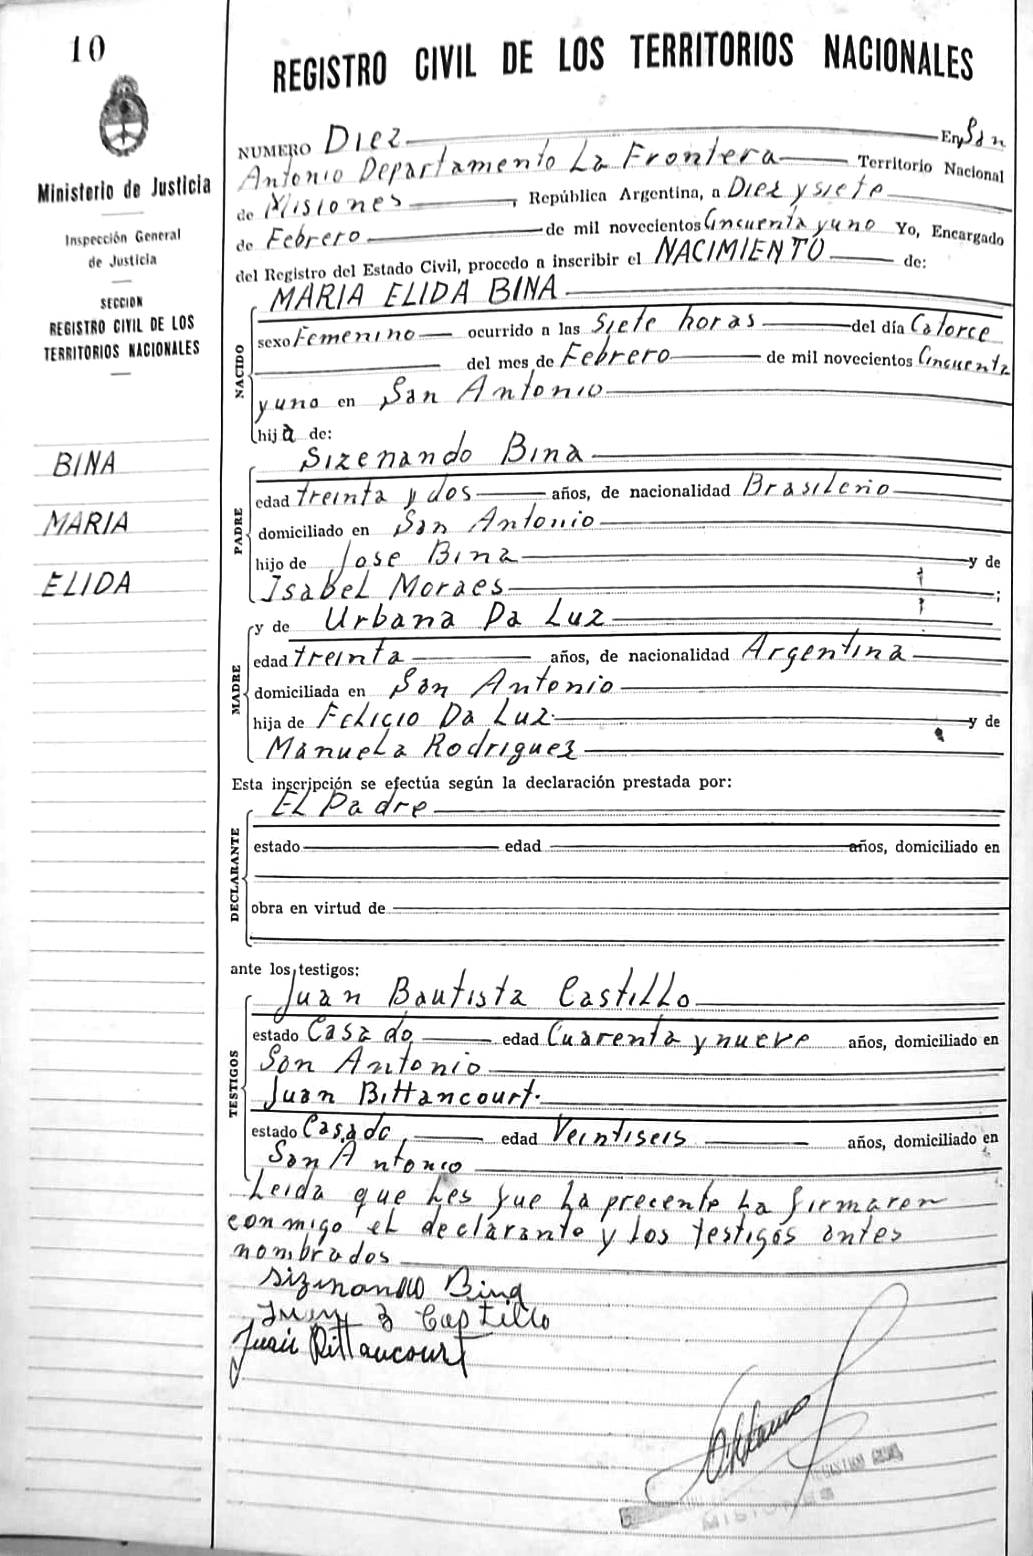 10
REGISTRO CIVIL DE LOS TERRITORIOS NACIONALES
Ministerio de Justicia
Inspección General
de Justicia
SECCION
REGISTRO CIVIL DE LOS
TERRITORIOS NACIONALES
BINA
MARIA
ELIDA
NUMERO Diez En San
Antonio Departamento La Frontera Territorio Nacional
de Misiones, República Argentina, a Diez y siete
de Febrero de mil novecientos Cincuenta y uno Yo, Encargado
del Registro del Estado Civil, procedo a inscribir el NACIMIENTO de:
NACIDO
MARIA ELIDA BINA
sexo Femenino ocurrido a las Siete horas del día Catorce
del mes de Febrero de mil novecientos Cincuenta
y uno en San Antonio
hija de:
PADRE
Sizenando Bina
edad treinta y dos años, de nacionalidad Brasileño
domiciliado en San Antonio
hijo de Jose Bina y de
Isabel Moraes ;
MADRE
y de Urbana Da Luz
edad treinta años, de nacionalidad Argentina
domiciliada en San Antonio
hija de Felicio Da Luz y de
Manuela Rodriguez
Esta inscripción se efectúa según la declaración prestada por:
DECLARANTE
El Padre
estado edad años, domiciliado en
obra en virtud de
ante los testigos:
TESTIGOS
Juan Bautista Castillo
estado Casado edad Cuarenta y nueve años, domiciliado en
San Antonio
Juan Bittancourt.
estado Casado, edad Veintiseis años, domiciliado en
San Antonio
Leida que les fue la precente la firmaron
conmigo el declarante y los testigos antes
nombrados
Sizinando Bina
Juan B Castillo
Juan Bittancourt
MISIONES